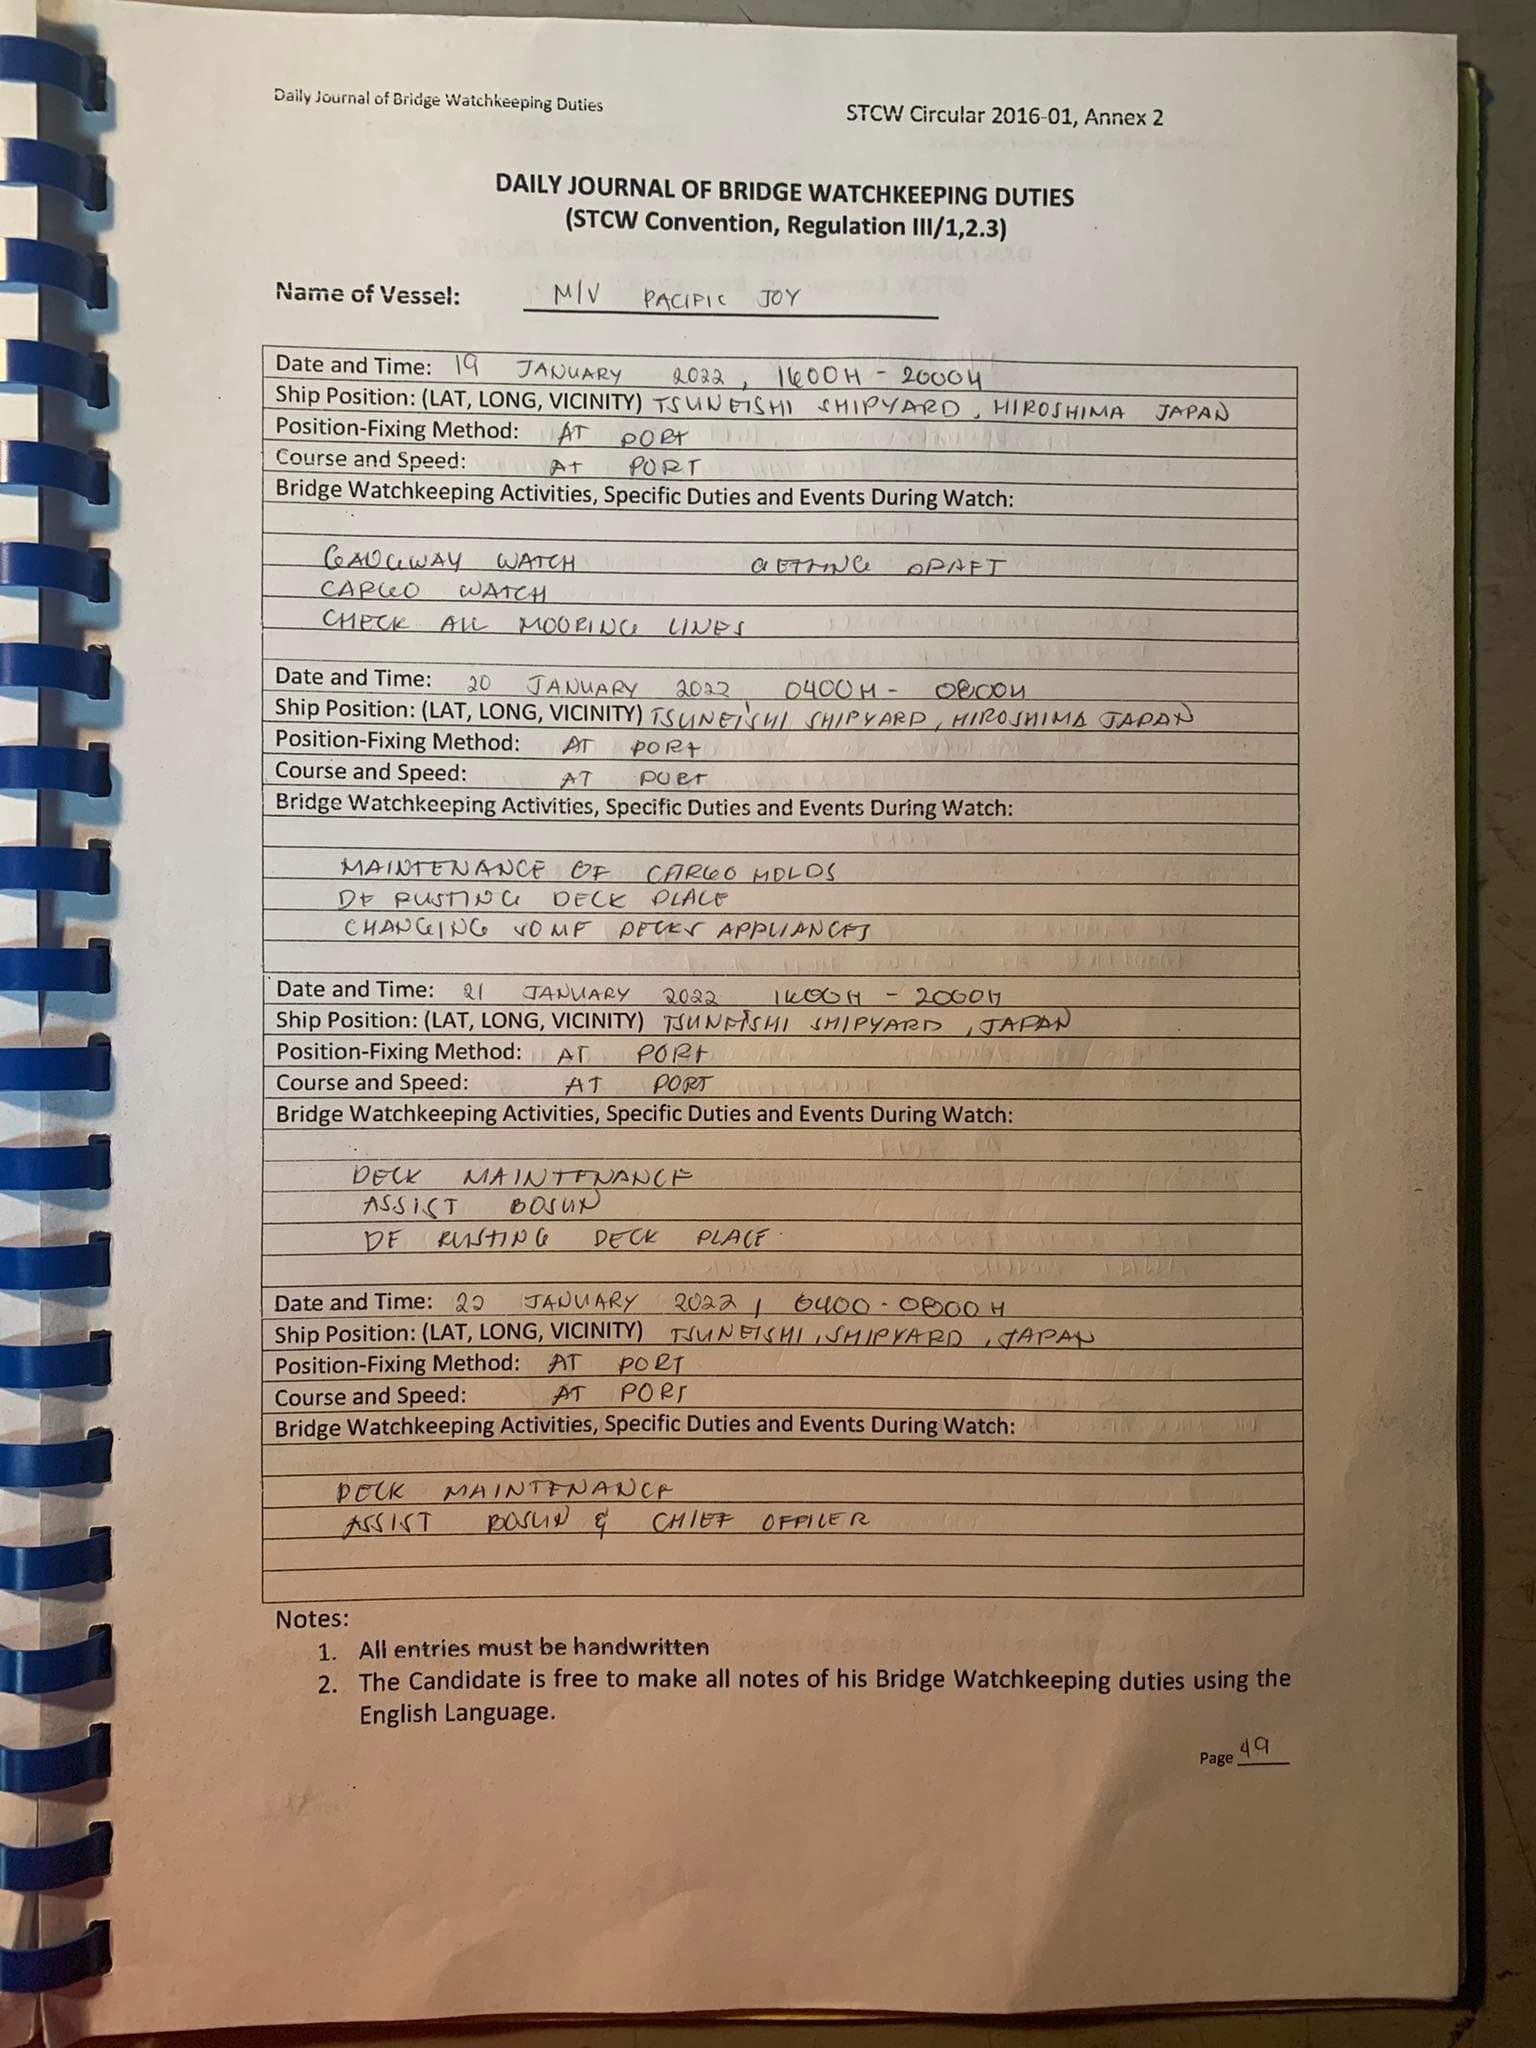 Daily Journal of Bridge Watchkeeping Duties
STCW Circular 2016-01, Annex 2
DAILY JOURNAL OF BRIDGE WATCHKEEPING DUTIES
(STCW Convention, Regulation III/1,2.3)
Name of Vessel: M/V PACIFIC JOY
Date and Time: 19 JANUARY 2022, 1600H - 2000H
Ship Position: (LAT, LONG, VICINITY) TSUNEISHI SHIPYARD, HIROSHIMA JAPAN
Position-Fixing Method: AT PORT
Course and Speed: AT PORT
Bridge Watchkeeping Activities, Specific Duties and Events During Watch:
GANGWAY WATCH GETTING DRAFT
CARGO WATCH
CHECK ALL MOORING LINES
Date and Time: 20 JANUARY 2022 0400H - 0800H
Ship Position: (LAT, LONG, VICINITY) TSUNEISHI SHIPYARD, HIROSHIMA JAPAN
Position-Fixing Method: AT PORT
Course and Speed: AT PORT
Bridge Watchkeeping Activities, Specific Duties and Events During Watch:
MAINTENANCE OF CARGO HOLDS
DE RUSTING DECK PLACE
CHANGING SOME DECKS APPLIANCES
Date and Time: 21 JANUARY 2022 1600H - 2000H
Ship Position: (LAT, LONG, VICINITY) TSUNEISHI SHIPYARD, JAPAN
Position-Fixing Method: AT PORT
Course and Speed: AT PORT
Bridge Watchkeeping Activities, Specific Duties and Events During Watch:
DECK MAINTENANCE
ASSIST BOSUN
DE RUSTING DECK PLACE
Date and Time: 22 JANUARY 2022, 0400-0800H
Ship Position: (LAT, LONG, VICINITY) TSUNEISHI, SHIPYARD, JAPAN
Position-Fixing Method: AT PORT
Course and Speed: AT PORT
Bridge Watchkeeping Activities, Specific Duties and Events During Watch:
DECK MAINTENANCE
ASSIST BOSUN & CHIEF OFFICER
Notes:
1. All entries must be handwritten
2. The Candidate is free to make all notes of his Bridge Watchkeeping duties using the
English Language.
Page 49